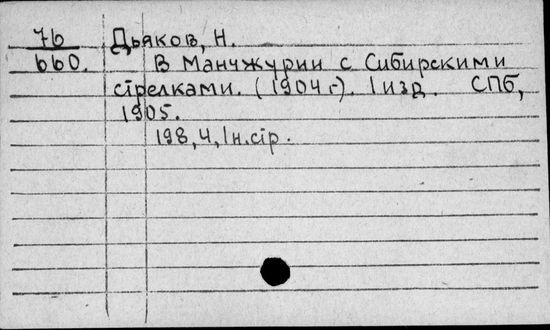 76 Дьяков, Н.
660. В Манчжурии с Сибирскими
стрелками. (1904 г.). 1 изд. СПб,
1905.
198, 4, 1 н. стр.